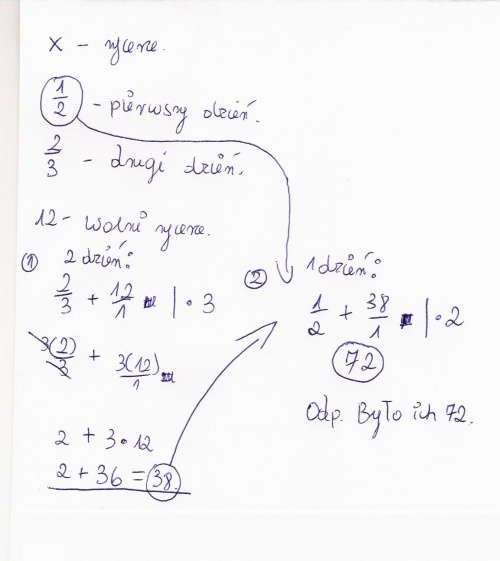 x - rycerze.
1/2 - pierwszy dzień.
2/3 - drugi dzień.
12 - wolni rycerze.
① 2 dzień:
2/3 + 12/1 | · 3
3(2)/3 + 3(12)/1
2 + 3 · 12
2 + 36 = 38.
② 1 dzień:
1/2 + 38/1 | · 2
72
Odp. Było ich 72.